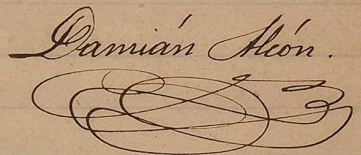 Damián Alcón.